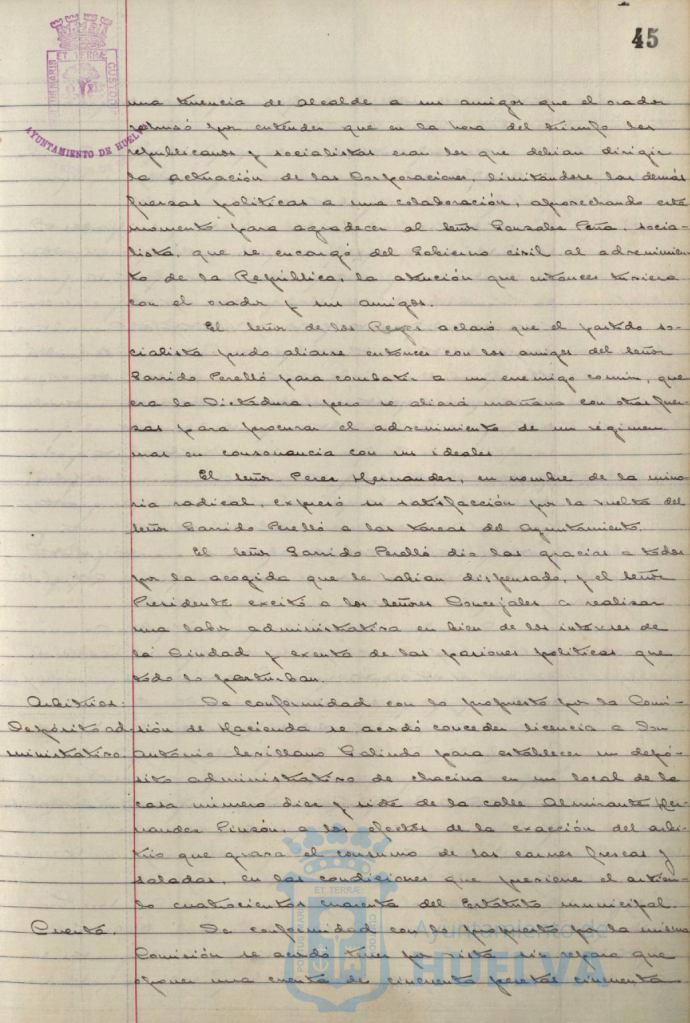 45
PORTUS MARIS ET TERRÆ CUSTODIA
AYUNTAMIENTO DE HUELVA
una tenencia de Alcalde a sus amigos que el orador
rehusó por entender que en la hora del triunfo los
republicanos y socialistas eran los que debian dirigir
la actuación de las Corporaciones, limitándose las demás
fuerzas politicas a una colaboración, aprovechando este
momento para agradecer al Señor Gonzalez Peña, socia-
lista, que se encargó del Gobierno civil al advenimien-
to de la República, la atención que entonces tuviera
con el orador y sus amigos.
El Señor de los Reyes aclaró que el partido so-
cialista pudo aliarse entonces con los amigos del Señor
Garrido Perelló para combatir a un enemigo común, que
era la Dictadura, pero se aliará mañana con otras fuer-
zas para procurar el advenimiento de un régimen
mas en consonancia con sus ideales
El Señor Perez Hernandez, en nombre de la mino-
ria radical, expresó su satisfacción por la vuelta del
Señor Garrido Perelló a las tareas del Ayuntamiento.
El Señor Garrido Perelló dio las gracias a todos
por la acogida que le habian dispensado, y el Señor
Presidente excitó a los Señores Concejales a realizar
una labor administrativa en bien de los intereses de
la Ciudad y exenta de las pasiones politicas que
todo lo perturban.
Arbitrios: De conformidad con lo propuesto por la Comi-
Depósito ad- sión de Hacienda se acordó conceder licencia a Don
ministrativo. Antonio Sevillano Galindo para establecer un depó-
sito administrativo de chacina en un local de la
casa número diez y siete de la calle Almirante Her-
nandez Pinzón, a los efectos de la exacción del arbi-
trio que grava el consumo de las carnes frescas y
saladas, en las condiciones que previene el articu-
lo cuatrocientos cuarenta del Estatuto municipal.
Cuenta. De conformidad con lo propuesto por la misma
Comisión se acordó tener por vista sin reparo que
oponer una cuenta de cincuenta pesetas cincuenta
PORTUS MARIS ET TERRÆ CUSTODIA
Ayuntamiento de
HUELVA